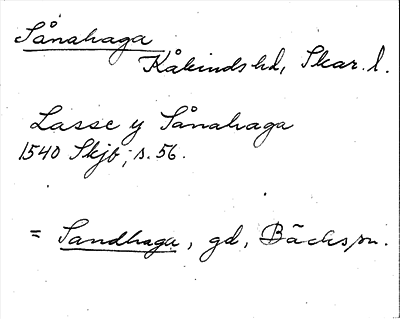 Sånahaga
Kåkinds hd, Skar. l.
Lasse y Sånahaga
1540 Skjb, s. 56.
= Sandhaga, gd, Bäcks sn.